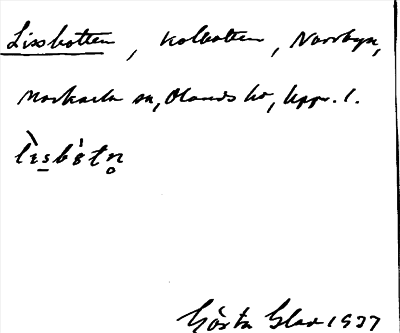 Lissbotten, Kolbotten, Norrbyn,
Morkarla sn, Olands hd, Upps. l.
Gösta Glad 1937